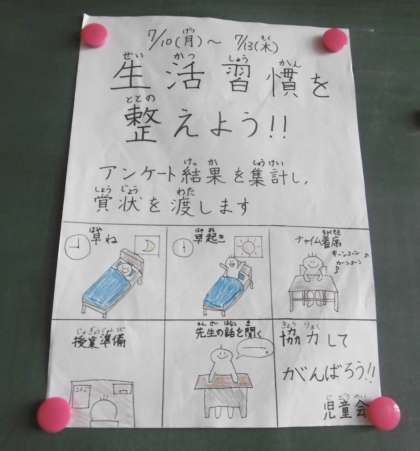 7/10(月)～7/13(木)
生活習慣を
整えよう!!
アンケート結果を集計し、
賞状を渡します
早ね
早起き
チャイム着席
キーンコーン
カーンコーン
授業準備
先生の話を聞く
協力して
がんばろう!!
児童会